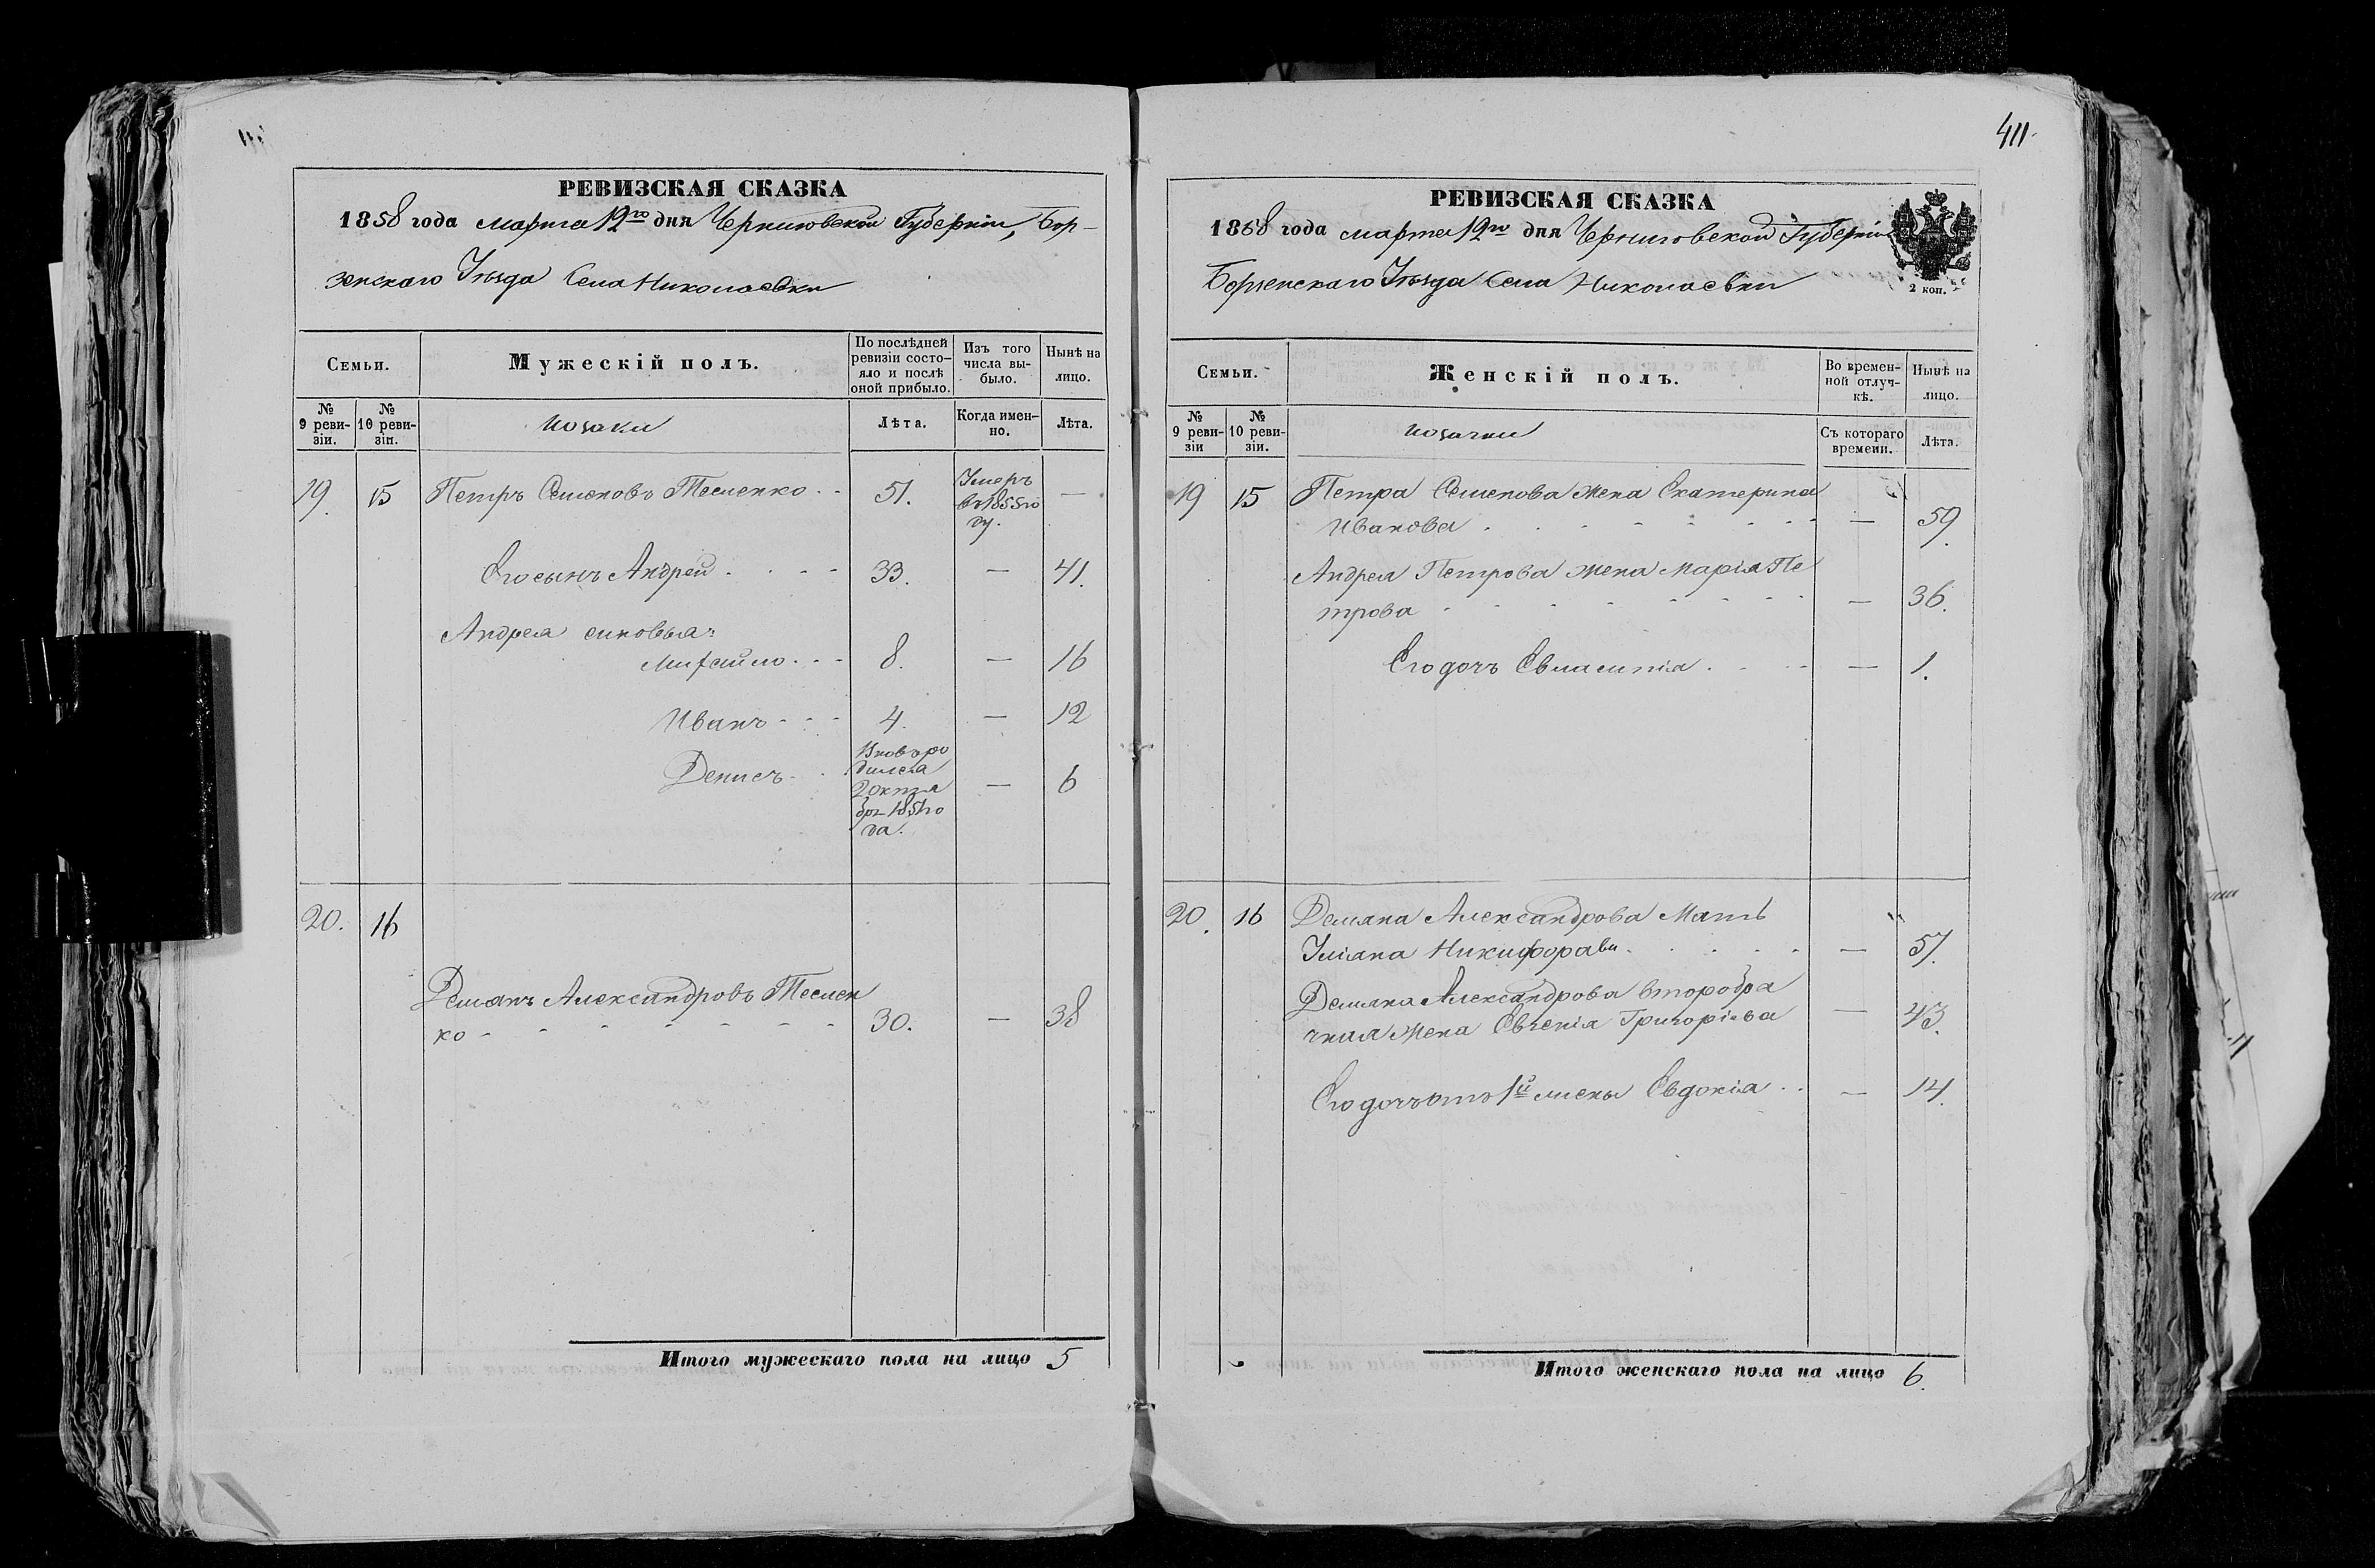 РЕВИЗСКАЯ СКАЗКА
1858 года марта 12го дня Черниговской Губерніи, Бор-
зенскаго Уѣзда Села Николаевки
Семьи.
Мужескій полъ.
По послѣдней ревизіи состо-
яло и послѣ оной прибыло.
Изъ того числа вы-
было.
Нынѣ на лицо.
№ 9 реви-
зіи.
№ 10 реви-
зіи.
Козаки
Лѣта.
Когда имен-
но.
Лѣта.
19. 15 Петръ Семеновъ Тесленко 51. Умеръ —
въ 1855 го
ду.
Его сынъ Андрей 33. — 41.
Андрея сыновья:
Михайло 8. — 16
Иванъ 4. — 12
Денисъ Вновь ро — 6
дился
2 октя
бря 1851 го
да.
20. 16
Демянъ Александровъ Теслен
ко 30. — 38
Итого мужескаго пола на лицо 5
411.
РЕВИЗСКАЯ СКАЗКА
1858 года марта 12го дня Черниговской Губерніи
Борзенскаго Уѣзда Села Николаевки
2 коп.
Семьи.
Женскій полъ.
Во времен-
ной отлуч-
кѣ.
Нынѣ на лицо.
№ 9 реви-
зіи
№ 10 реви-
зіи.
Козачки
Съ котораго времени.
Лѣта.
19 15 Петра Семенова жена Екатерина
Иванова — 59.
Андрея Петрова жена Марія Пе
трова — 36.
Его дочь — 1.
20. 16 Демяна Александрова Мать
Уліана Никифорава — 57.
Демяна Александрова второбра
чная жена Евгенія Григоріева — 43.
Его дочь отъ 1й жены Евдокія — 14.
Итого женскаго пола на лицо 6.